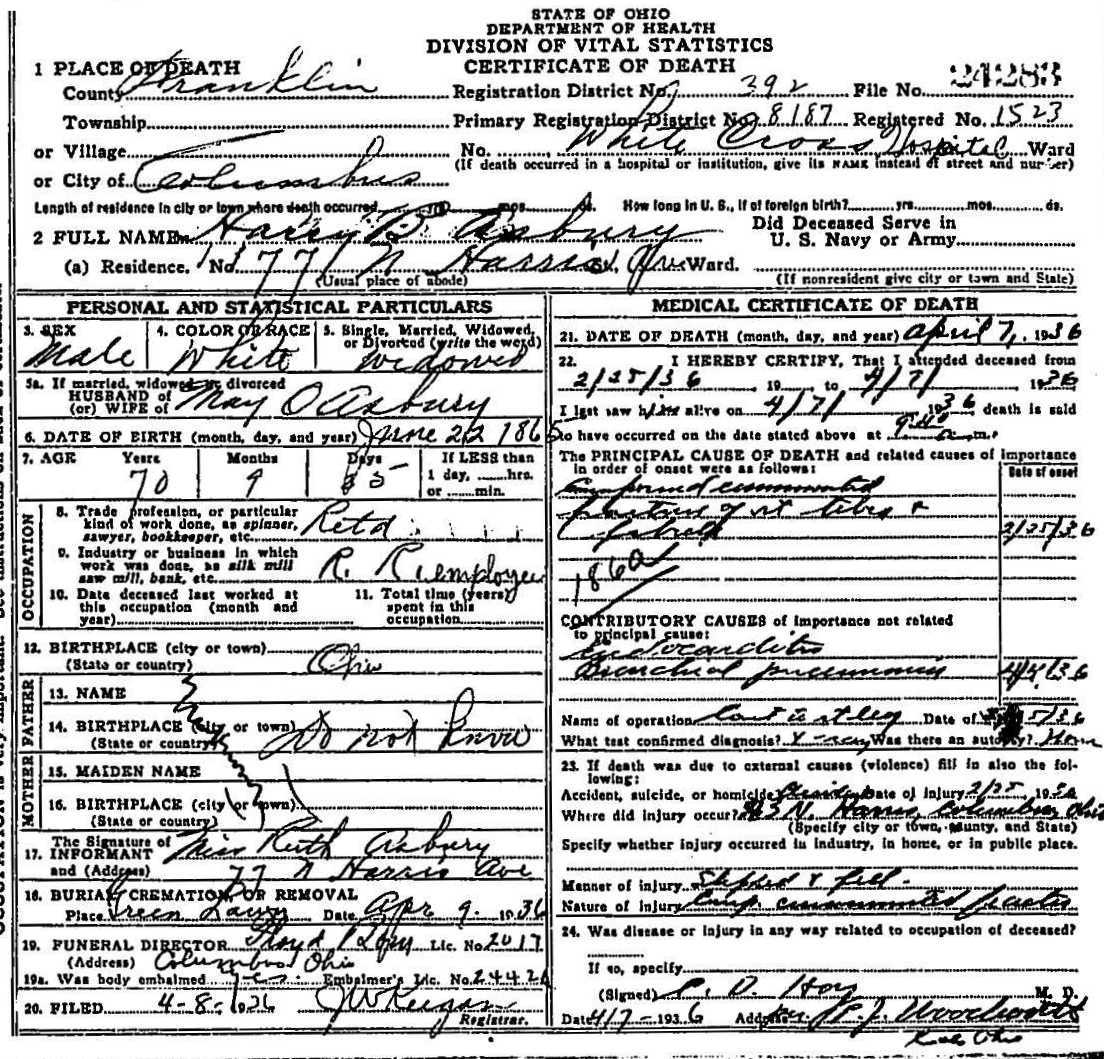 STATE OF OHIO
DEPARTMENT OF HEALTH
DIVISION OF VITAL STATISTICS
CERTIFICATE OF DEATH
1 PLACE OF DEATH
County Franklin Registration District No. 392 File No. 24283
Township Primary Registration District No. 8187 Registered No. 1523
or Village No. White Cross Hospital Ward
(If death occurred in a hospital or institution, give its NAME instead of street and number)
or City of Columbus
Length of residence in city or town where death occurred yrs. mos. ds. How long in U. S., if of foreign birth? yrs. mos. ds.
2 FULL NAME Harry B Asbury Did Deceased Serve in
U. S. Navy or Army
(a) Residence. No. 77 N Harris Ave St. Ward.
(Usual place of abode) (If nonresident give city or town and State)
PERSONAL AND STATISTICAL PARTICULARS
3. SEX 4. COLOR OR RACE 5. Single, Married, Widowed,
or Divorced (write the word)
Male White Widowed
5a. If married, widowed or divorced
HUSBAND of
(or) WIFE of May O Asbury
6. DATE OF BIRTH (month, day, and year) June 22 1865
7. AGE Years Months Days If LESS than
1 day, hrs.
or min.
70 9 15
OCCUPATION
8. Trade profession, or particular
kind of work done, as spinner,
sawyer, bookkeeper, etc. Retd
9. Industry or business in which
work was done, as silk mill
saw mill, bank, etc. R. R. employee
10. Date deceased last worked at
this occupation (month and
year)
11. Total time (years)
spent in this
occupation
12. BIRTHPLACE (city or town)
(State or country) Ohio
FATHER
13. NAME
14. BIRTHPLACE (city or town)
(State or country) Do not know
MOTHER
15. MAIDEN NAME
16. BIRTHPLACE (city or town)
(State or country)
17. The Signature of
INFORMANT Miss Ruth Asbury
and (Address) 77 N Harris Ave
18. BURIAL CREMATION OR REMOVAL
Place Green Lawn Date Apr 9. 1936
19. FUNERAL DIRECTOR Floyd Lic. No. 2017
(Address) Columbus Ohio
19a. Was body embalmed yes Embalmer's Lic. No. 2442
20. FILED 4-8-1936 J W Keegan
Registrar.
MEDICAL CERTIFICATE OF DEATH
21. DATE OF DEATH (month, day, and year) April 7, 1936
22. I HEREBY CERTIFY, That I attended deceased from
2/25/36, 19 to 4/7/ 1936
I last saw him alive on 4/7/ 1936 death is said
to have occurred on the date stated above at 9:40 a.m.
The PRINCIPAL CAUSE OF DEATH and related causes of importance
in order of onset were as follows: Date of onset
Compound comminuted
fracture of rt tibia &
fibula 2/25/36
186a
CONTRIBUTORY CAUSES of importance not related
to principal cause:
Endocarditis
Bronchial pneumonia 4/4/36
Name of operation Cast to rt leg Date of 5/36
What test confirmed diagnosis? X-ray Was there an autopsy? None
23. If death was due to external causes (violence) fill in also the fol-
lowing:
Accident, suicide, or homicide? Accident Date of injury 2/25, 1936
Where did injury occur? N. Harris, Columbus Ohio
(Specify city or town, county, and State)
Specify whether injury occurred in industry, in home, or in public place.
Manner of injury Slipped & fell.
Nature of injury Comp. comminuted fracture
24. Was disease or injury in any way related to occupation of deceased?
If so, specify
(Signed) C. D. Hoy M. D.
Date 4/7-1936 Address W. J. Woodworth
Cols Ohio